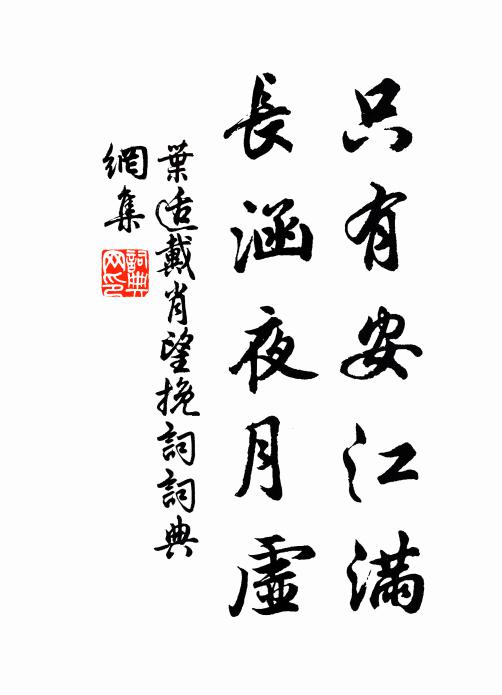 只有安江滿
長涵夜月虛
葉适戴肖望挽詞詞典
網集
詞典
网印